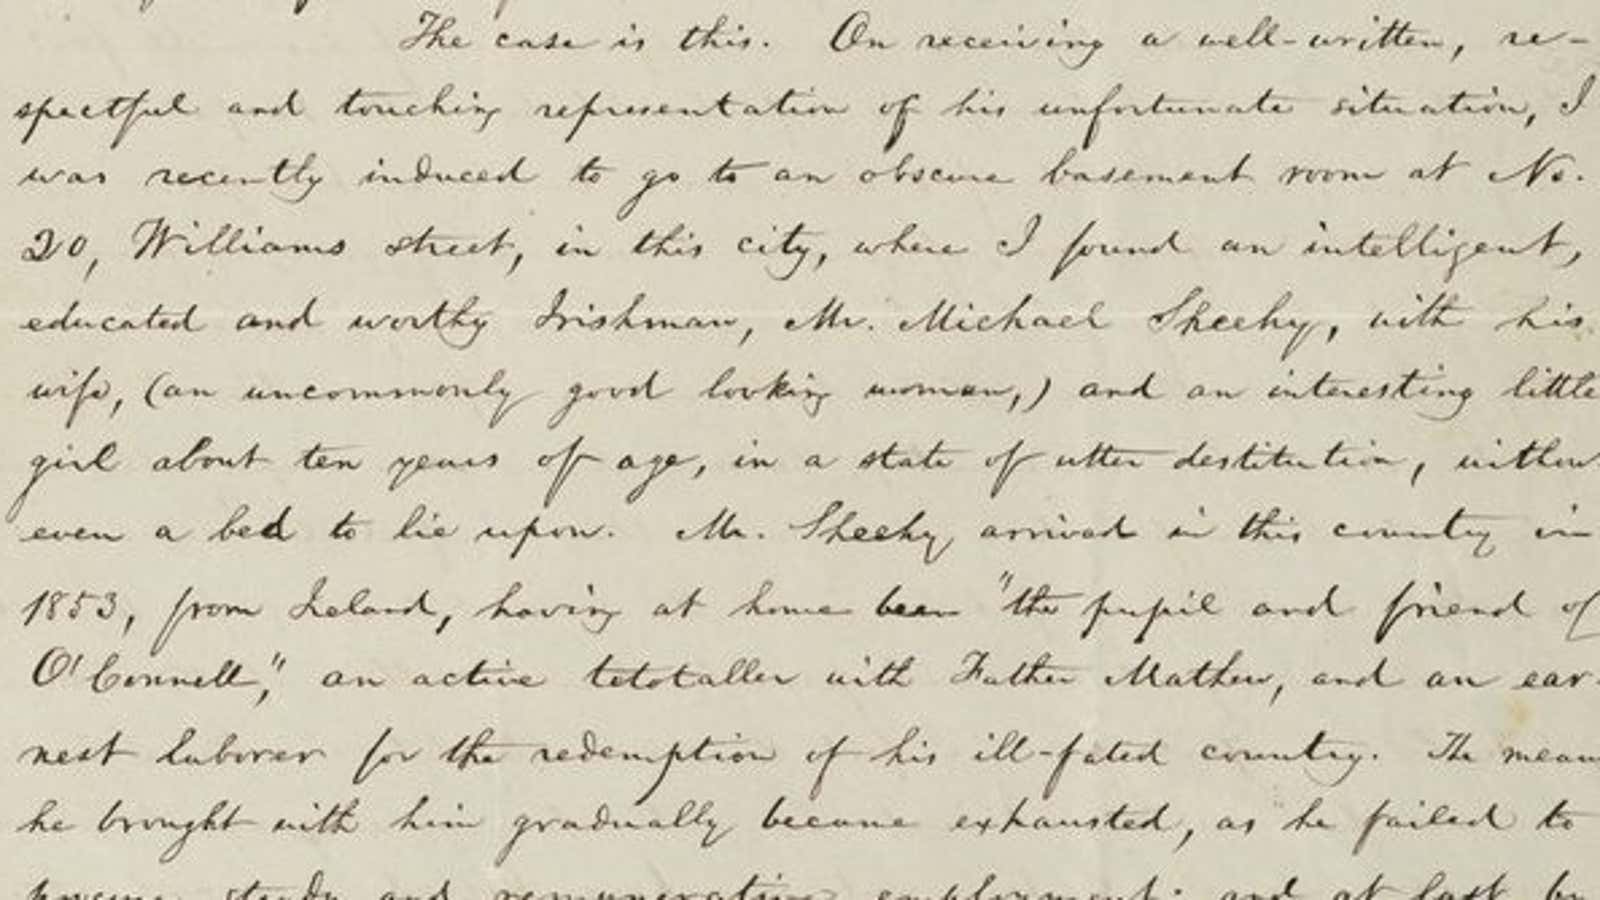 The case is this. On receiving a well-written, re-
spectful and touching representation of his unfortunate situation, I
was recently induced to go to an obscure basement room at No.
20, Williams street, in this city, where I found an intelligent,
educated and worthy Irishman, Mr. Michael Sheehy, with his
wife, (an uncommonly good looking woman,) and an interesting little
girl about ten years of age, in a state of utter destitution, withou
even a bed to lie upon. Mr. Sheehy arrived in this country in
1853, from Ireland, having at home been "the pupil and friend of
O'Connell," an active tetotaller with Father Mathew, and an ear-
nest laborer for the redemption of his ill-fated country. The mean
he brought with him gradually became exhausted, as he failed to
steady and remunerative employment; and at last by